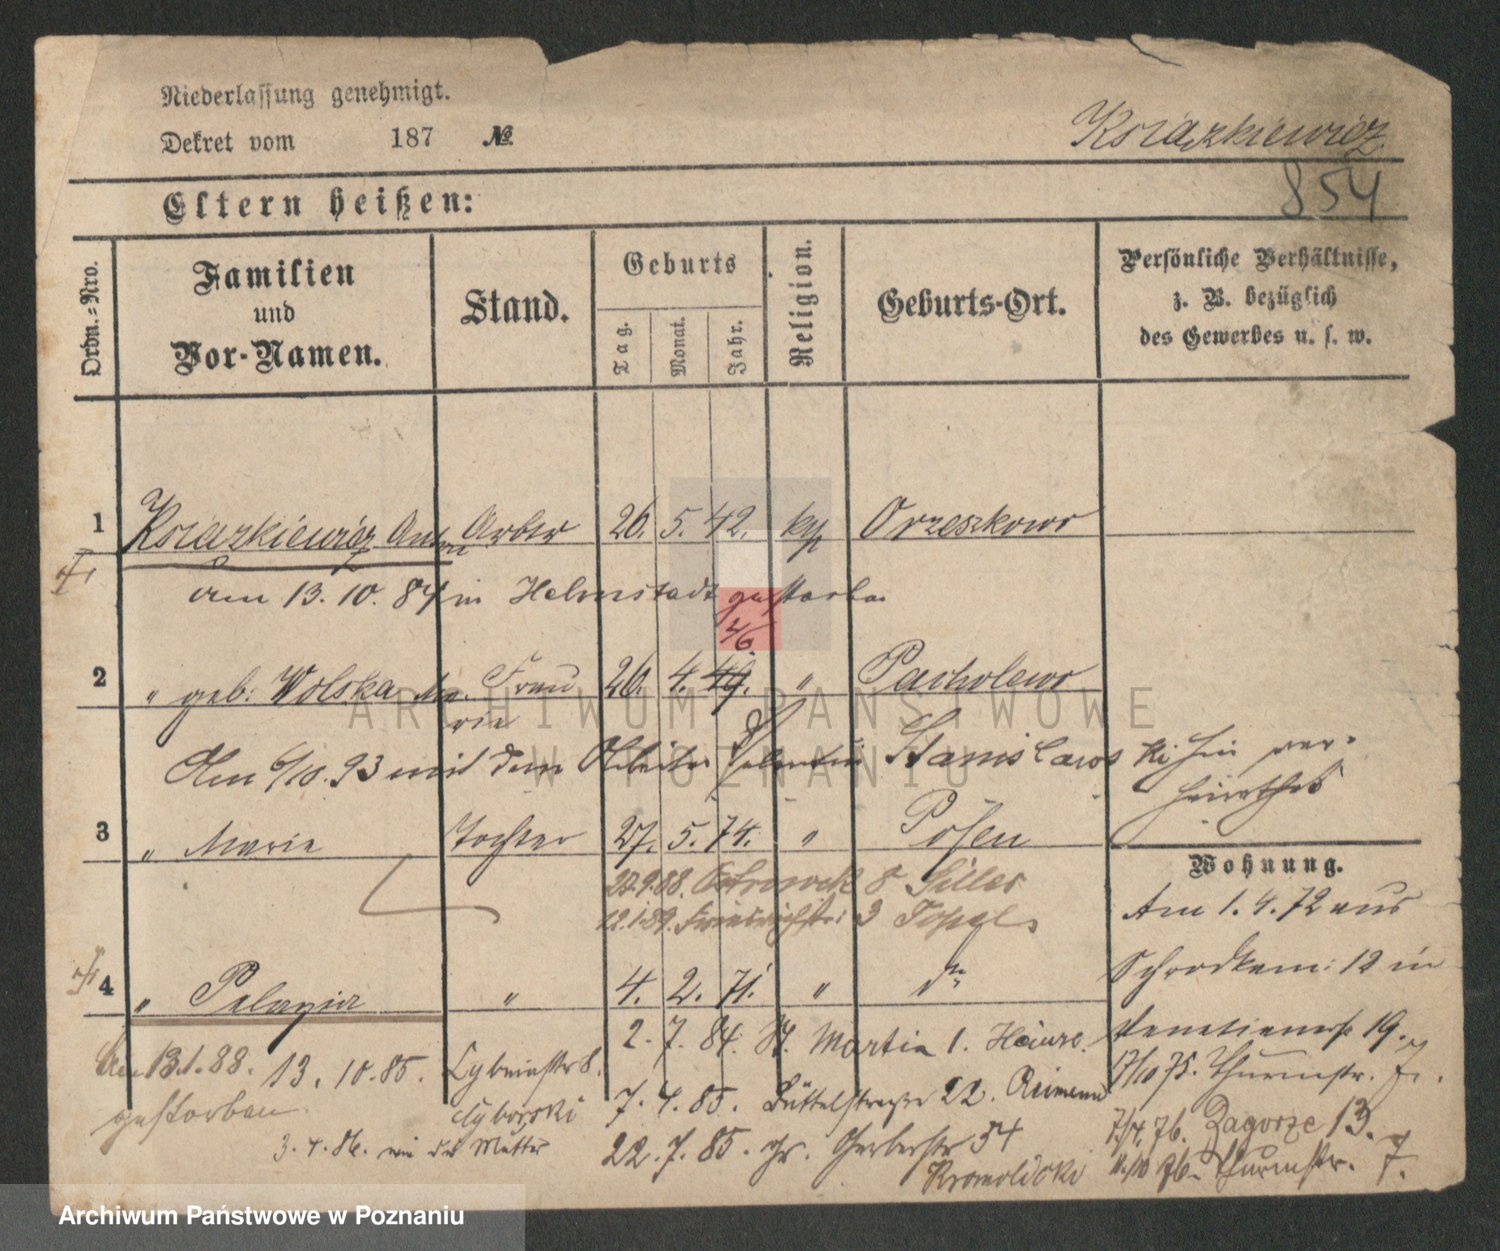 Niederlassung genehmigt.
Dekret vom 187 №
Ksiazkiewicz
854
Eltern heißen:
Ordn.=Nro.
Familien
und
Vor-Namen.
Stand.
Geburts
Tag.
Monat.
Jahr.
Religion.
Geburts-Ort.
Persönliche Verhältnisse,
z. B. bezüglich
des Gewerbes u. s. w.
1 Ksiazkiewicz Anton Arbtr 26. 5. 42. kth Orzeszkowo
am 13. 10. 84 in Helmstadt gestorben
46.
2 " geb: Wolska Ma- Frau 26. 4. 49. " Pacholewo
rie
Am 6/10. 93 mit dem Arbeiter Valentin Stanislawski hier ver-
heirathet
3 " Marie Tochter 27. 5. 74. " Posen
Wohnung.
8 Siller
Am 1. 4. 72 aus
12.1.89. Friedrichstr: 3
Schrodkam: 12 in
4 " Pelagia " 4. 2. 71. " do
Venetianerstr 19.
2. 7. 84. St. Martin 1. Heinze.
17/10 75. Thurmstr. 7.
Am 13.1.88. 13. 10. 85. 8.
gestorben.
Cyborski
7. 4. 85. Büttelstraße 22. Reimann
7/4. 76. Zagorze 13.
3. 4. 86. wie die Mutter
22. 7. 85. gr. Gerberstr 54
11/10 76. Thurmstr. 7.
Kromolicki
ARCHIWUM PAŃSTWOWE
W POZNANIU
Archiwum Państwowe w Poznaniu